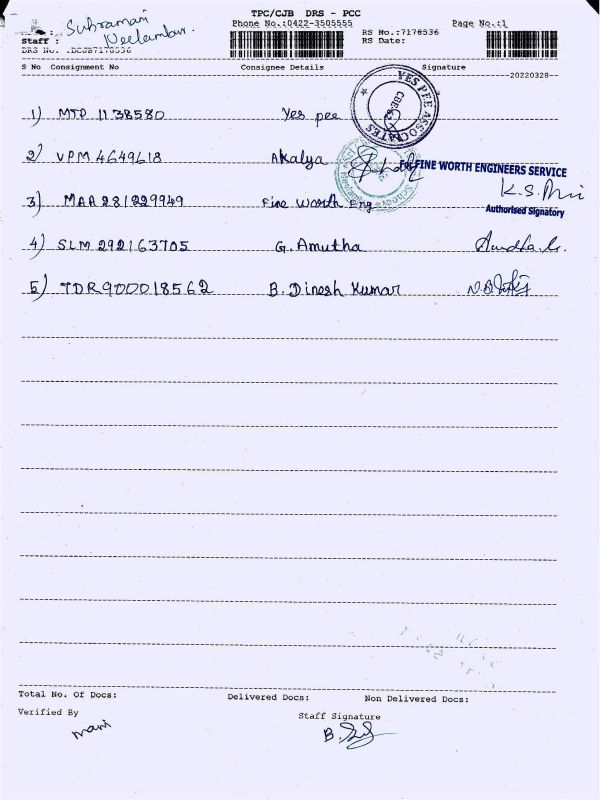 TPC/CJB DRS - PCC
Subramani
Phone No.:0422-3505555
Page No.:1
Staff :
RS No.:7178536
DRS No. :DCJB7178536
RS Date:
S No Consignment No Consignee Details Signature
20220328
1) MTP 1138580 Yes pee
YES PEE ASSOCIATES
2) VPM 4649618 Akalya
For FINE WORTH ENGINEERS SERVICE
3) MAA 281229949 Fine Worth Eng
Authorised Signatory
4) SLM 292163705 G. Amutha
5) TDR900018562 B. Dinesh Kumar
Total No. Of Docs: Delivered Docs: Non Delivered Docs:
Verified By Staff Signature
mani